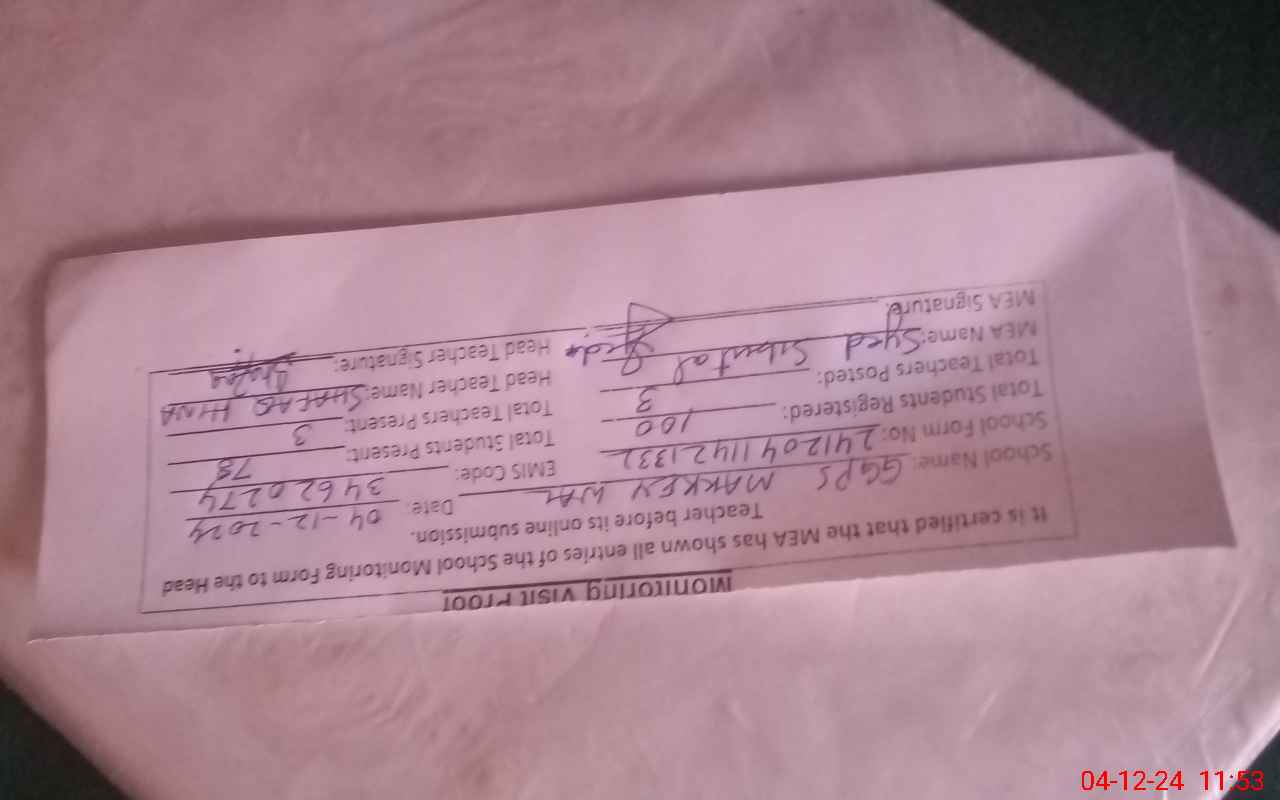 Monitoring Visit Proof
It is certified that the MEA has shown all entries of the School Monitoring Form to the Head
Teacher before its online submission.
Date: 04-12-2024
School Name: GGPS MAKKEN WAL
EMIS Code: 34620274
School Form No: 24120411421332
Total Students Present: 78
Total Students Registered: 100
Total Teachers Present: 3
Total Teachers Posted: 3
Head Teacher Name: SHAFAQ HINA
MEA Name: Syed Sibutal
Head Teacher Signature:
MEA Signature:
04-12-24 11:53